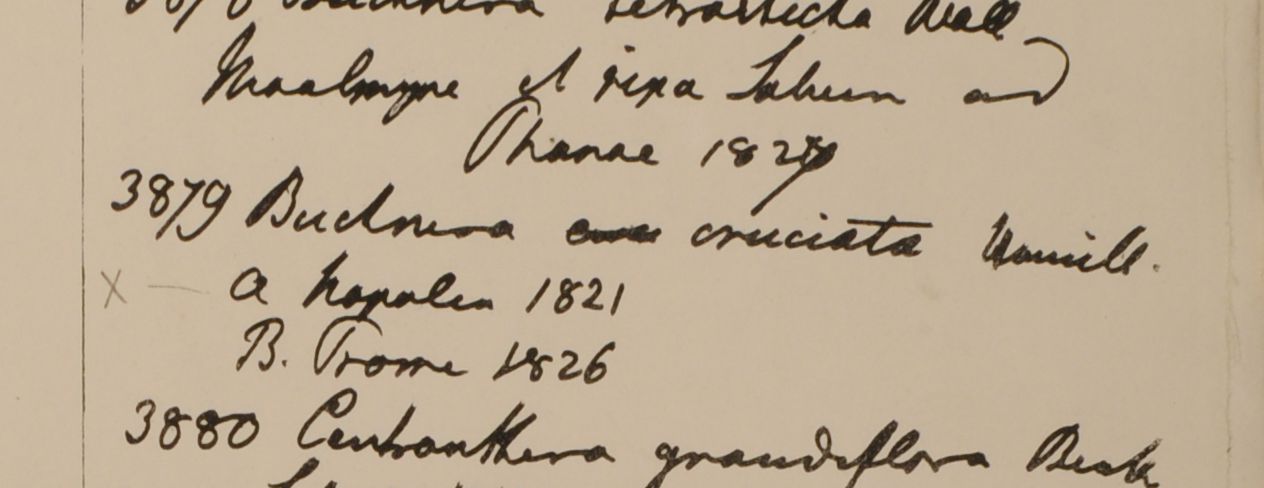 3878 Buchnera tetrasticha Wall
Moalmyne et ripa Saluen ad
Phanae 1827
3879 Buchnera cruciata Hamill.
X — a Napalia 1821
B. Prome 1826
3880 Centranthera grandiflora Benth